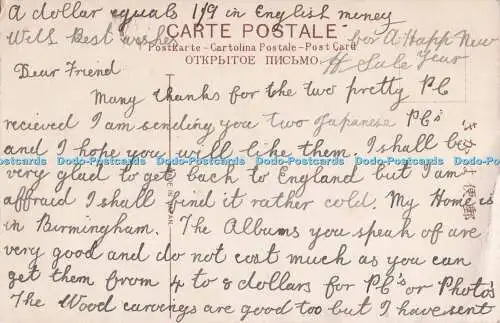 A dollar equals 1/9 in English money
CARTE POSTALE
With Best wishes for A Happ New Year
Postkarte - Cartolina Postale - Post Card
ОТКРЫТОЕ ПИСЬМО
H Sale
Dear Friend
Many thanks for the two pretty PC
recieved I am sending you two Japanese PCs
and I hope you will like them. I shall be
Dodo-Postcards Dodo-Postcards Dodo-Postcards Dodo-Postcards
very glad to get back to England but I am
affraid I shall find it rather cold. My Home is
in Birmingham. The Albums you speak of are
very good and do not cost much as you can
get them from 4 to 8 dollars for PCs or Photos
The Wood carvings are good too but I have sent